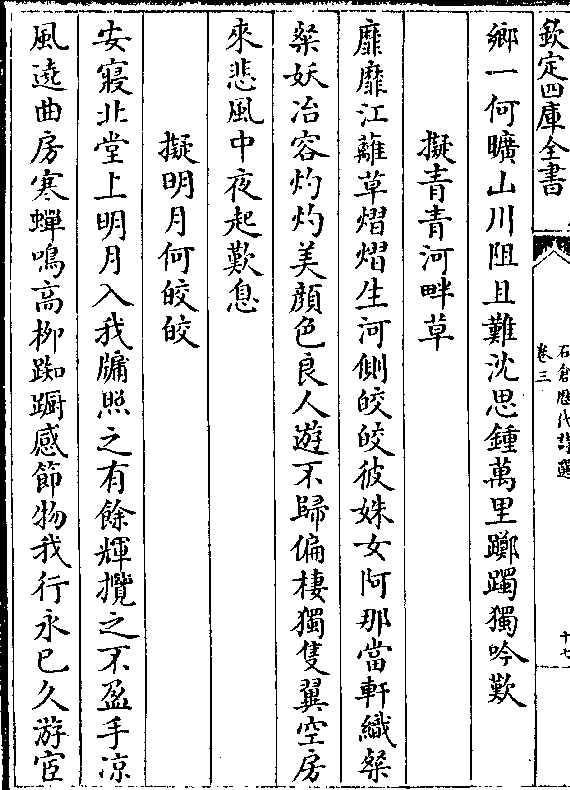 欽定四庫全書
石倉歴代詩選
卷三
十七
鄉一何曠山川阻且難沈思鍾萬里躑躅獨吟歎
擬青青河畔草
靡靡江蘺草熠熠生河側皎皎彼姝女阿那當軒織粲
粲妖冶容灼灼美顔色良人遊不歸偏棲獨隻翼空房
來悲風中夜起歎息
擬明月何皎皎
安寢北堂上明月入我牖照之有餘輝攬之不盈手凉
風遶曲房寒蟬鳴高栁踟蹰感節物我行永已久游宦